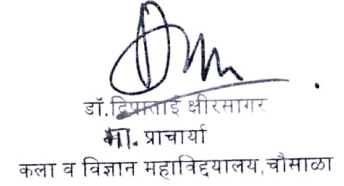 डॉ.दिपाताई क्षीरसागर
मा. प्राचार्या
कला व विज्ञान महाविद्दयालय,चौसाळा